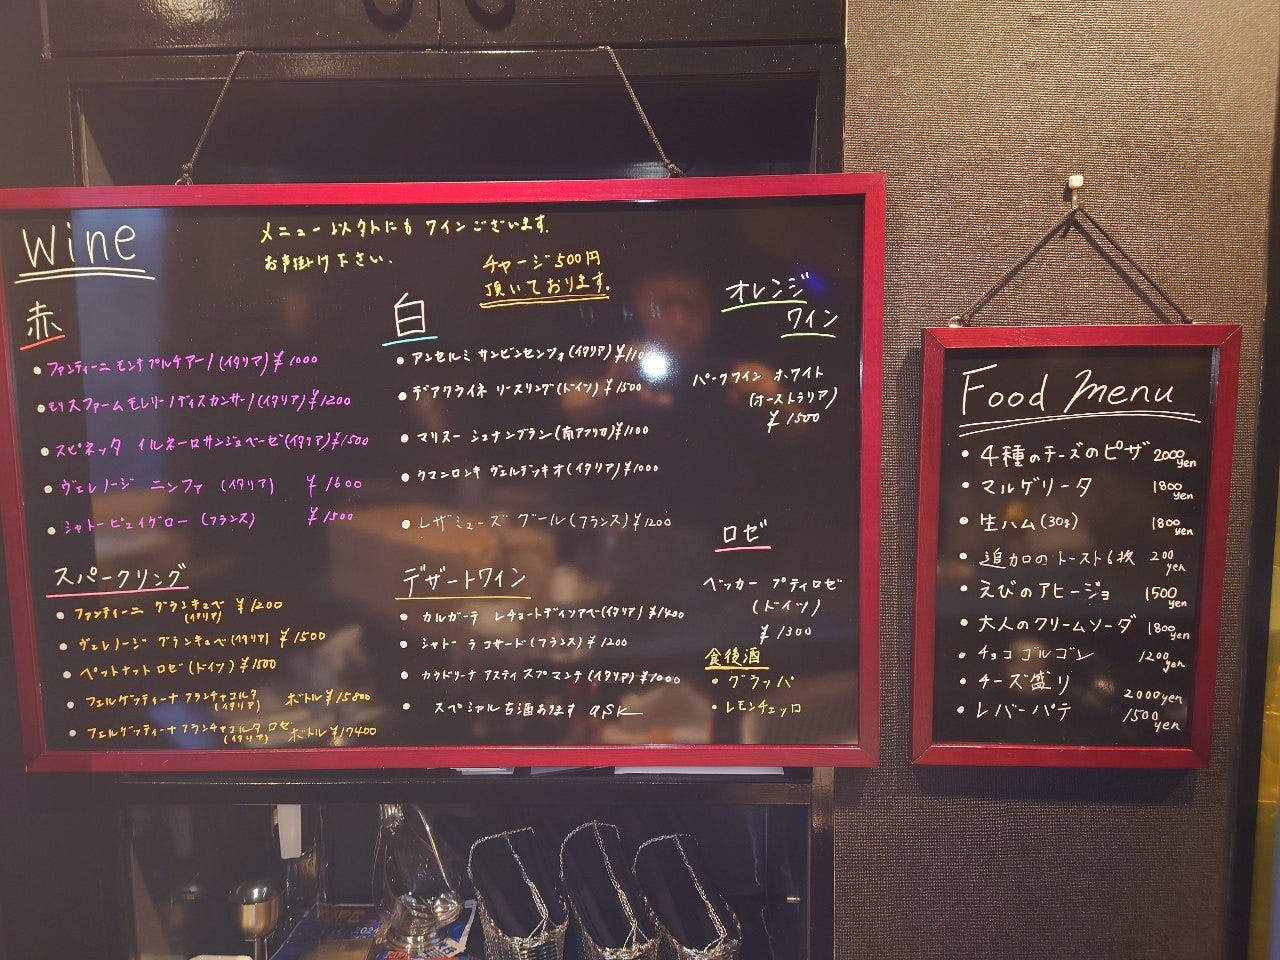 Wine
メニュー以外にも ワインございます。
お声掛け下さい。
チャージ500円
頂いております。
赤
• ファンティーニ モンテプルチアーノ(イタリア)¥1000
• モリスファームモレリーノディスカンサーノ(イタリア)¥1200
• スピネッタ イルネーロサンジョベーゼ(イタリア)¥1500
• ヴェレノージ ニンファ (イタリア) ¥1600
• シャトーピュイグロー (フランス) ¥1500
スパークリング
• ファンティーニ グランキュベ ¥1200
(イタリア)
• ヴェレノージ グランキュベ(イタリア)¥1500
• ペットナットロゼ(ドイツ)¥1500
• フェルゲッティーナ フランチャコルタ ボトル¥15800
(イタリア)
• フェルゲッティーナフランチャコルタロゼ ボトル¥17400
(イタリア)
白
• アンセルミ サンビンセンツォ(イタリア)¥1100
• デアクライネ リースリング(ドイツ)¥1500
• マリヌー シュナンブラン(南アフリカ)¥1100
• ウマニロンキ ヴェルデッキオ(イタリア)¥1000
• レザミューズ グール(フランス)¥1200
デザートワイン
• カルガーテ レチョートディソアベ(イタリア)¥1400
• シャトー ラコサード(フランス)¥1200
• カウドリーナ アスティ スプマンテ(イタリア)¥1000
• スペシャル古酒あります ask
オレンジ
ワイン
パークワイン ホワイト
(オーストラリア)
¥1500
ロゼ
ベッカー プティロゼ
(ドイツ)
¥1300
食後酒
• グラッパ
• レモンチェッロ
Food menu
• 4種のチーズのピザ 2000yen
• マルゲリータ 1800yen
• 生ハム(30g) 1800yen
• 追加のトースト6枚 200yen
• えびのアヒージョ 1500yen
• 大人のクリームソーダ 1800yen
• チョコゴルゴン 1200yen
• チーズ盛り 2000yen
• レバーパテ 1500yen
2024